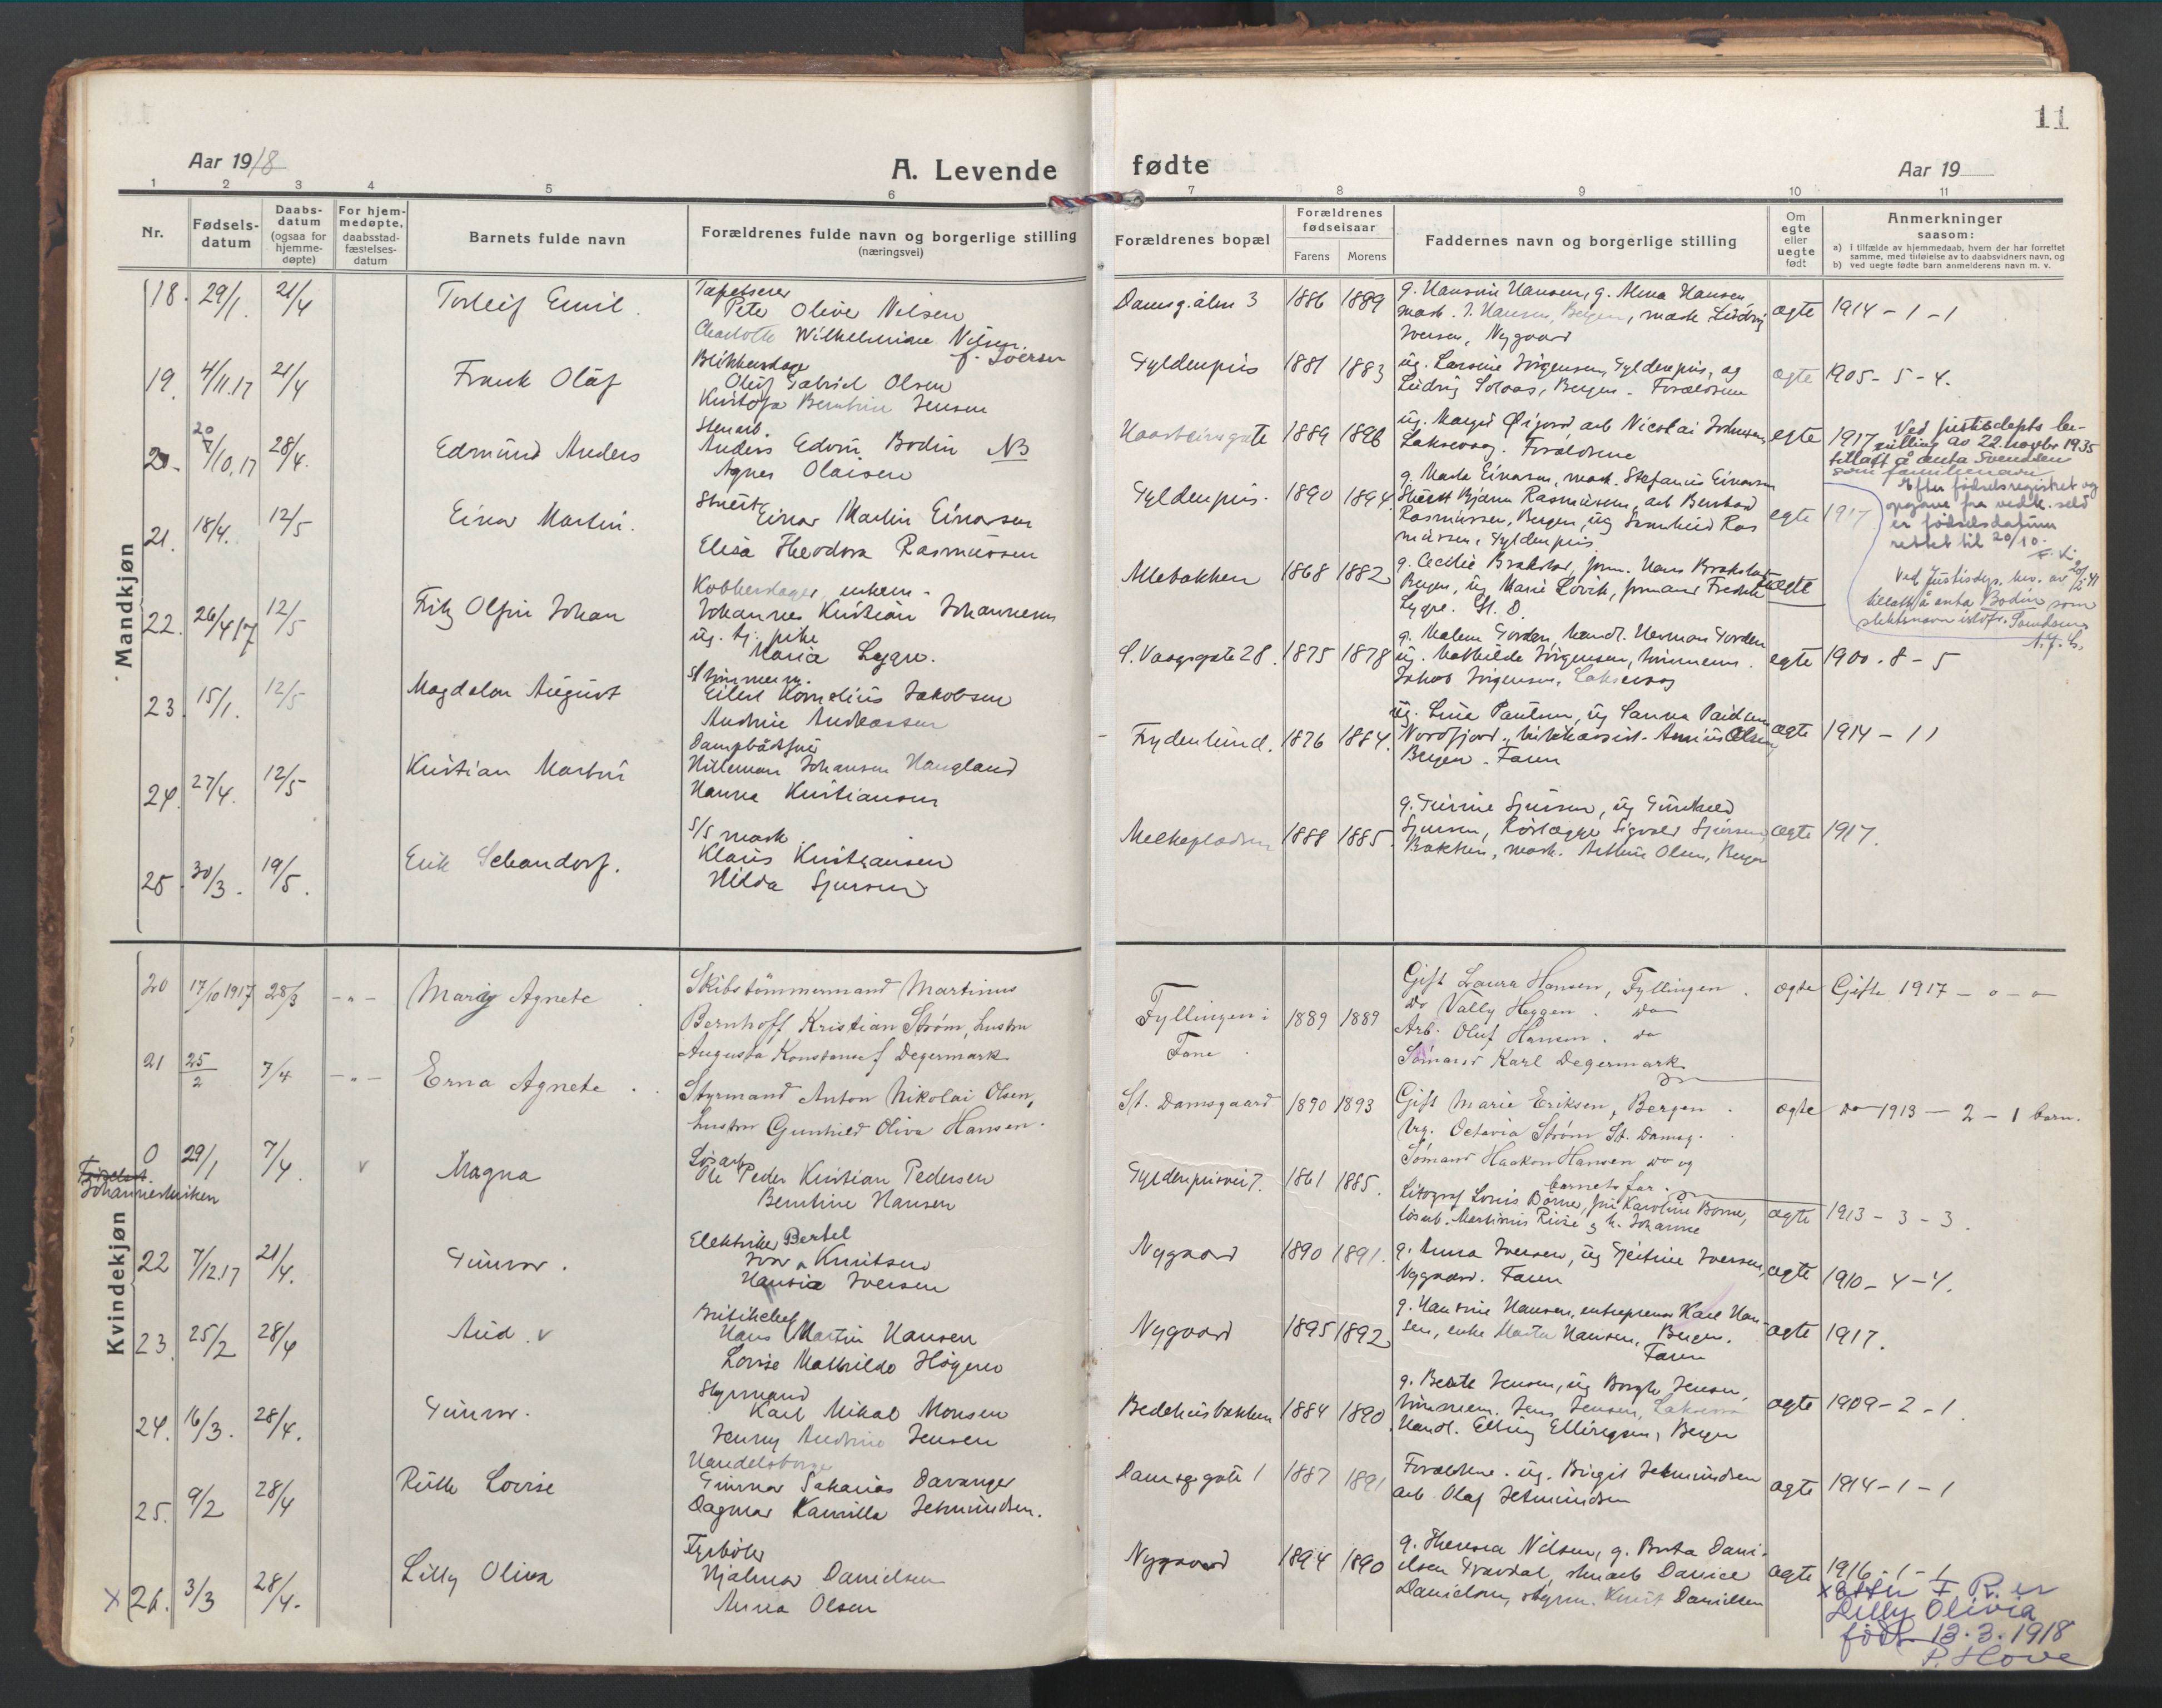 11
Aar 1918
A. Levende
fødte
Aar 19
1 2 3 4 5 6 7 8 9 10 11
Nr.
Fødsels-
datum
Daabs-
datum
(ogsaa for
hjemme-
døpte)
For hjem-
medøpte,
daabsstad-
fæstelses-
datum
Barnets fulde navn
Forældrenes fulde navn og borgerlige stilling
(næringsvei)
Forældrenes bopæl
Forældrenes
fødselsaar
Farens
Morens
Faddernes navn og borgerlige stilling
Om
egte
eller
uegte
født
Anmerkninger
saasom:
a) I tilfælde av hjemmedaab, hvem der har forrettet
samme, med tilføielse av to daabsvidners navn, og
b) ved uegte fødte barn anmelderens navn m. v.
Mandkjøn
18. 29/1. 21/4
Torleif Emil.
Tapetserer
Peter Oliver Nilsen
Charlotte Wilhelmine Nilsen
f. Iversen
Damsg.alm 3
1886 1889
g. Hansine Hansen, g. Alma Hansen,
mask. J. Hansen, Bergen, mask Ludvig
Iversen, Nygaard
ægte
1914 - 1 - 1
19. 4/11.17 21/4
Frank Olaf
Olaf Gabriel Olsen
Kristofa Berntine Jensen
Gyldenpris
1881 1883
ug. Larsine Jørgensen, Gyldenpris, og
Ludvig Solaas, Bergen. Forældrene
ægte
1905 - 5 - 4.
20. 20 7/10.17 28/4.
Edmund Anders
Stenarb.
Anders Edvin Bodin NB
Agnes Olaisen
1889 1896
Laksevaag. Forældrene
egte
1917
Ved justisdepts be-
villing av 22. novbr 1935
tillatt å anta Svendsen
som familienavn
Efter fødselsregistret og
opgave fra vedk. selv
er fødselsdatum
rettet til 20/10.
Ved Justisdep. bev. av
tillatt å anta Bodin som
slektsnavn istdf.
21. 18/4. 12/5
Einar Martin.
Stuert
Einar Martin Einarsen
Elisa Theodora Rasmussen
Gyldenpris.
1890 1894.
g. Marta Einarsen, mask. Stefanus Einarsen
Stuert Bjarne Rasmussen, arb Bernhard
Rasmussen, Bergen, ug Gunhild Ras
mussen, Gyldenpris
egte
1917
22. 26/4 17 12/5
Fritz Olfin Johan
Kobberslager, enkem.
Johannes Kristian Johannesen
ug. tj. pike
Maria Lygre.
Allebakken
1868 1882
g. Cecilie Brakstad, form. Hans Brakstad
Bergen, ug Marie Lovik, formand Fredrik
Lygre. St. D.
uægte
23. 15/1. 12/5
Magdalon August
Eilert Kornelius Jakobsen
Andrine Andreassen
S. Vaagsgate 28.
1875 1878
g. Malene Torden, handl. Herman Torden
ug. Mathilde Jørgensen, tømmerm.
Jakob Jørgensen, Laksevaag
egte
1900 - 8 - 5
24. 27/4. 12/5
Kristian Martin
Dampbåtfører
Nilleman Johansen Haugland
Hanna Kristiansen
Frydenlund.
1876 1884.
ug. Lina Paulsen, ug Sanna Davidsen
Nordfjord, Annius Olsen,
Bergen. Faren
ægte
1914 - 11
25. 30/3. 19/5.
Erik Schandorf.
S/S mask
Klaus Kristiansen
Hilda Sjursen
Melkepladsen
1888 1885.
g. Gurine Sjursen, ug Gunhild
Sjursen, Rørlægger Sigvald Sjursen,
Bakken, mask. Arthur Olsen, Bergen
ægte
1917.
Kvindekjøn
20 17/10 1917 28/3 - " -
Mary Agnete
Skibstømmermand Martinus
Bernhoff Kristian Strøm, hustru
Augusta Konstanse f Degermark
Fyllingen i
Fane.
1889 1889
Gift Laura Hansen, Fyllingen.
do Vally Heggen. do
Arb. Oluf Hansen. do
Sømand Karl Degermark
ægte
Gifte 1917 - 0 - 0
21 25/2 7/4 - " -
Erna Agnete.
Styrmand Anton Nikolai Olsen,
hustru Gunhild Oliva Hansen.
St. Damsgaard
1890 1893
Gift Marie Eriksen, Bergen.
Ug. Octavia Strøm St. Damsg.
Sømand Haakon Hansen do og
barnets far.
ægte
do 1913 - 2 - 1 barn.
0 29/1 7/4. v
Johanneskirken
Magna
Løsarb
Ole Peder Kristian Pedersen
Berntine Hansen
Gyldenprisvei 7.
1861 1885.
Litograf Louis Børne, fru Karoline Børne,
løsarb. Martinius Riise og h. Johanne
ægte
1913 - 3 - 3.
22 7/12.17 21/4.
Gunvor.
Elektriker Bertel
Ivar Knutsen
Hansia Iversen
Nygaard
1890 1891.
g. Anna Iversen, ug Gjertine Iversen,
Nygaard. Faren
ægte
1910 - 4 - 4.
23. 25/2 28/4
Aud. v
Hans Martin Hansen
Lovise Mathilde Høyeren
Nygaard
1895 1892
g. Hansine Hansen, entreprenør Karl Han-
sen, enke Marta Hansen, Bergen.
Faren
ægte
1917.
24. 16/3. 28/4.
Gunvor.
Styrmand
Karl Mikal Monsen
Jenny Andrine Jensen
Bedehusbakken
1884 1890
g. Berte Jensen, ug Borghi Jensen,
tømmerm. Jens Jensen, Laksevaa
Handl. Elling Ellingsen, Bergen
ægte
1909 - 2 - 1.
25. 9/2 28/4
Ruth Lovise
Gunnar Sakarias Davanger
Dagmar Kamilla Jetmundsen.
Damsg.gate 1
1887 1891
Forældrene. ug. Birgit Jetmundsen
arb Olaf Jetmundsen
ægte
1914 - 1 - 1
x 26. 3/3 28/4.
Lilly Oliva
Fyrbøter
Hjalmar Danielsen
Anna Olsen
Nygaard
1894 1890
g. Theresia Nilsen, g. Berta Dani-
elsen Gravdal, stenarb Daniel
Danielsen, styrm. Knut Danielsen
ægte
1916 - 1 - 1
x Etter F. R. er
Lilly Olivia
født 13.3.1918
P. Hove